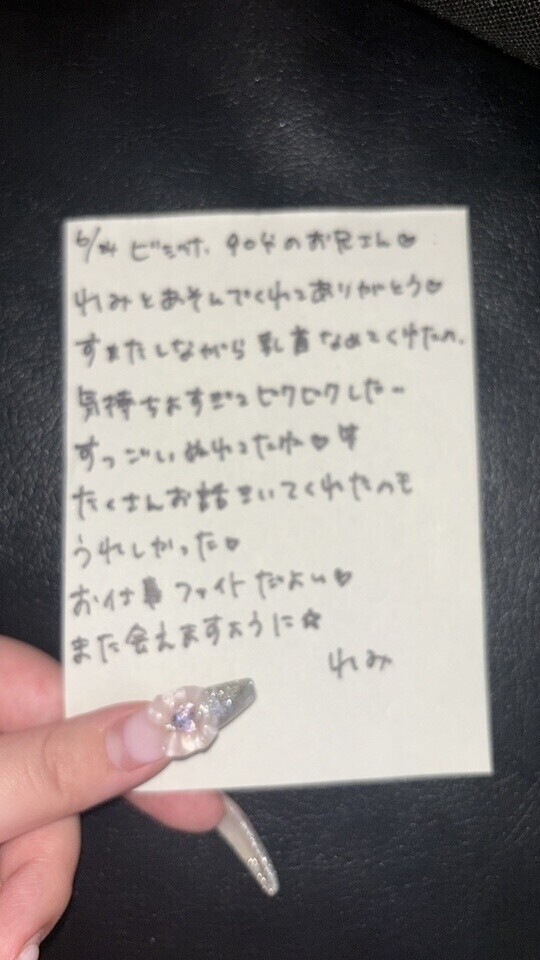 6/24 ビ 90分のお兄さん♡
れみとあそんでくれてありがとう♡
すまたしながら乳首なめてくれたの、
気持ちよすぎてビクビクした〜
すっごいぬれてたね♡
たくさんお話きいてくれたのも
うれしかった♡
お仕事ファイトだよい♡
また会えますように☆
れみ